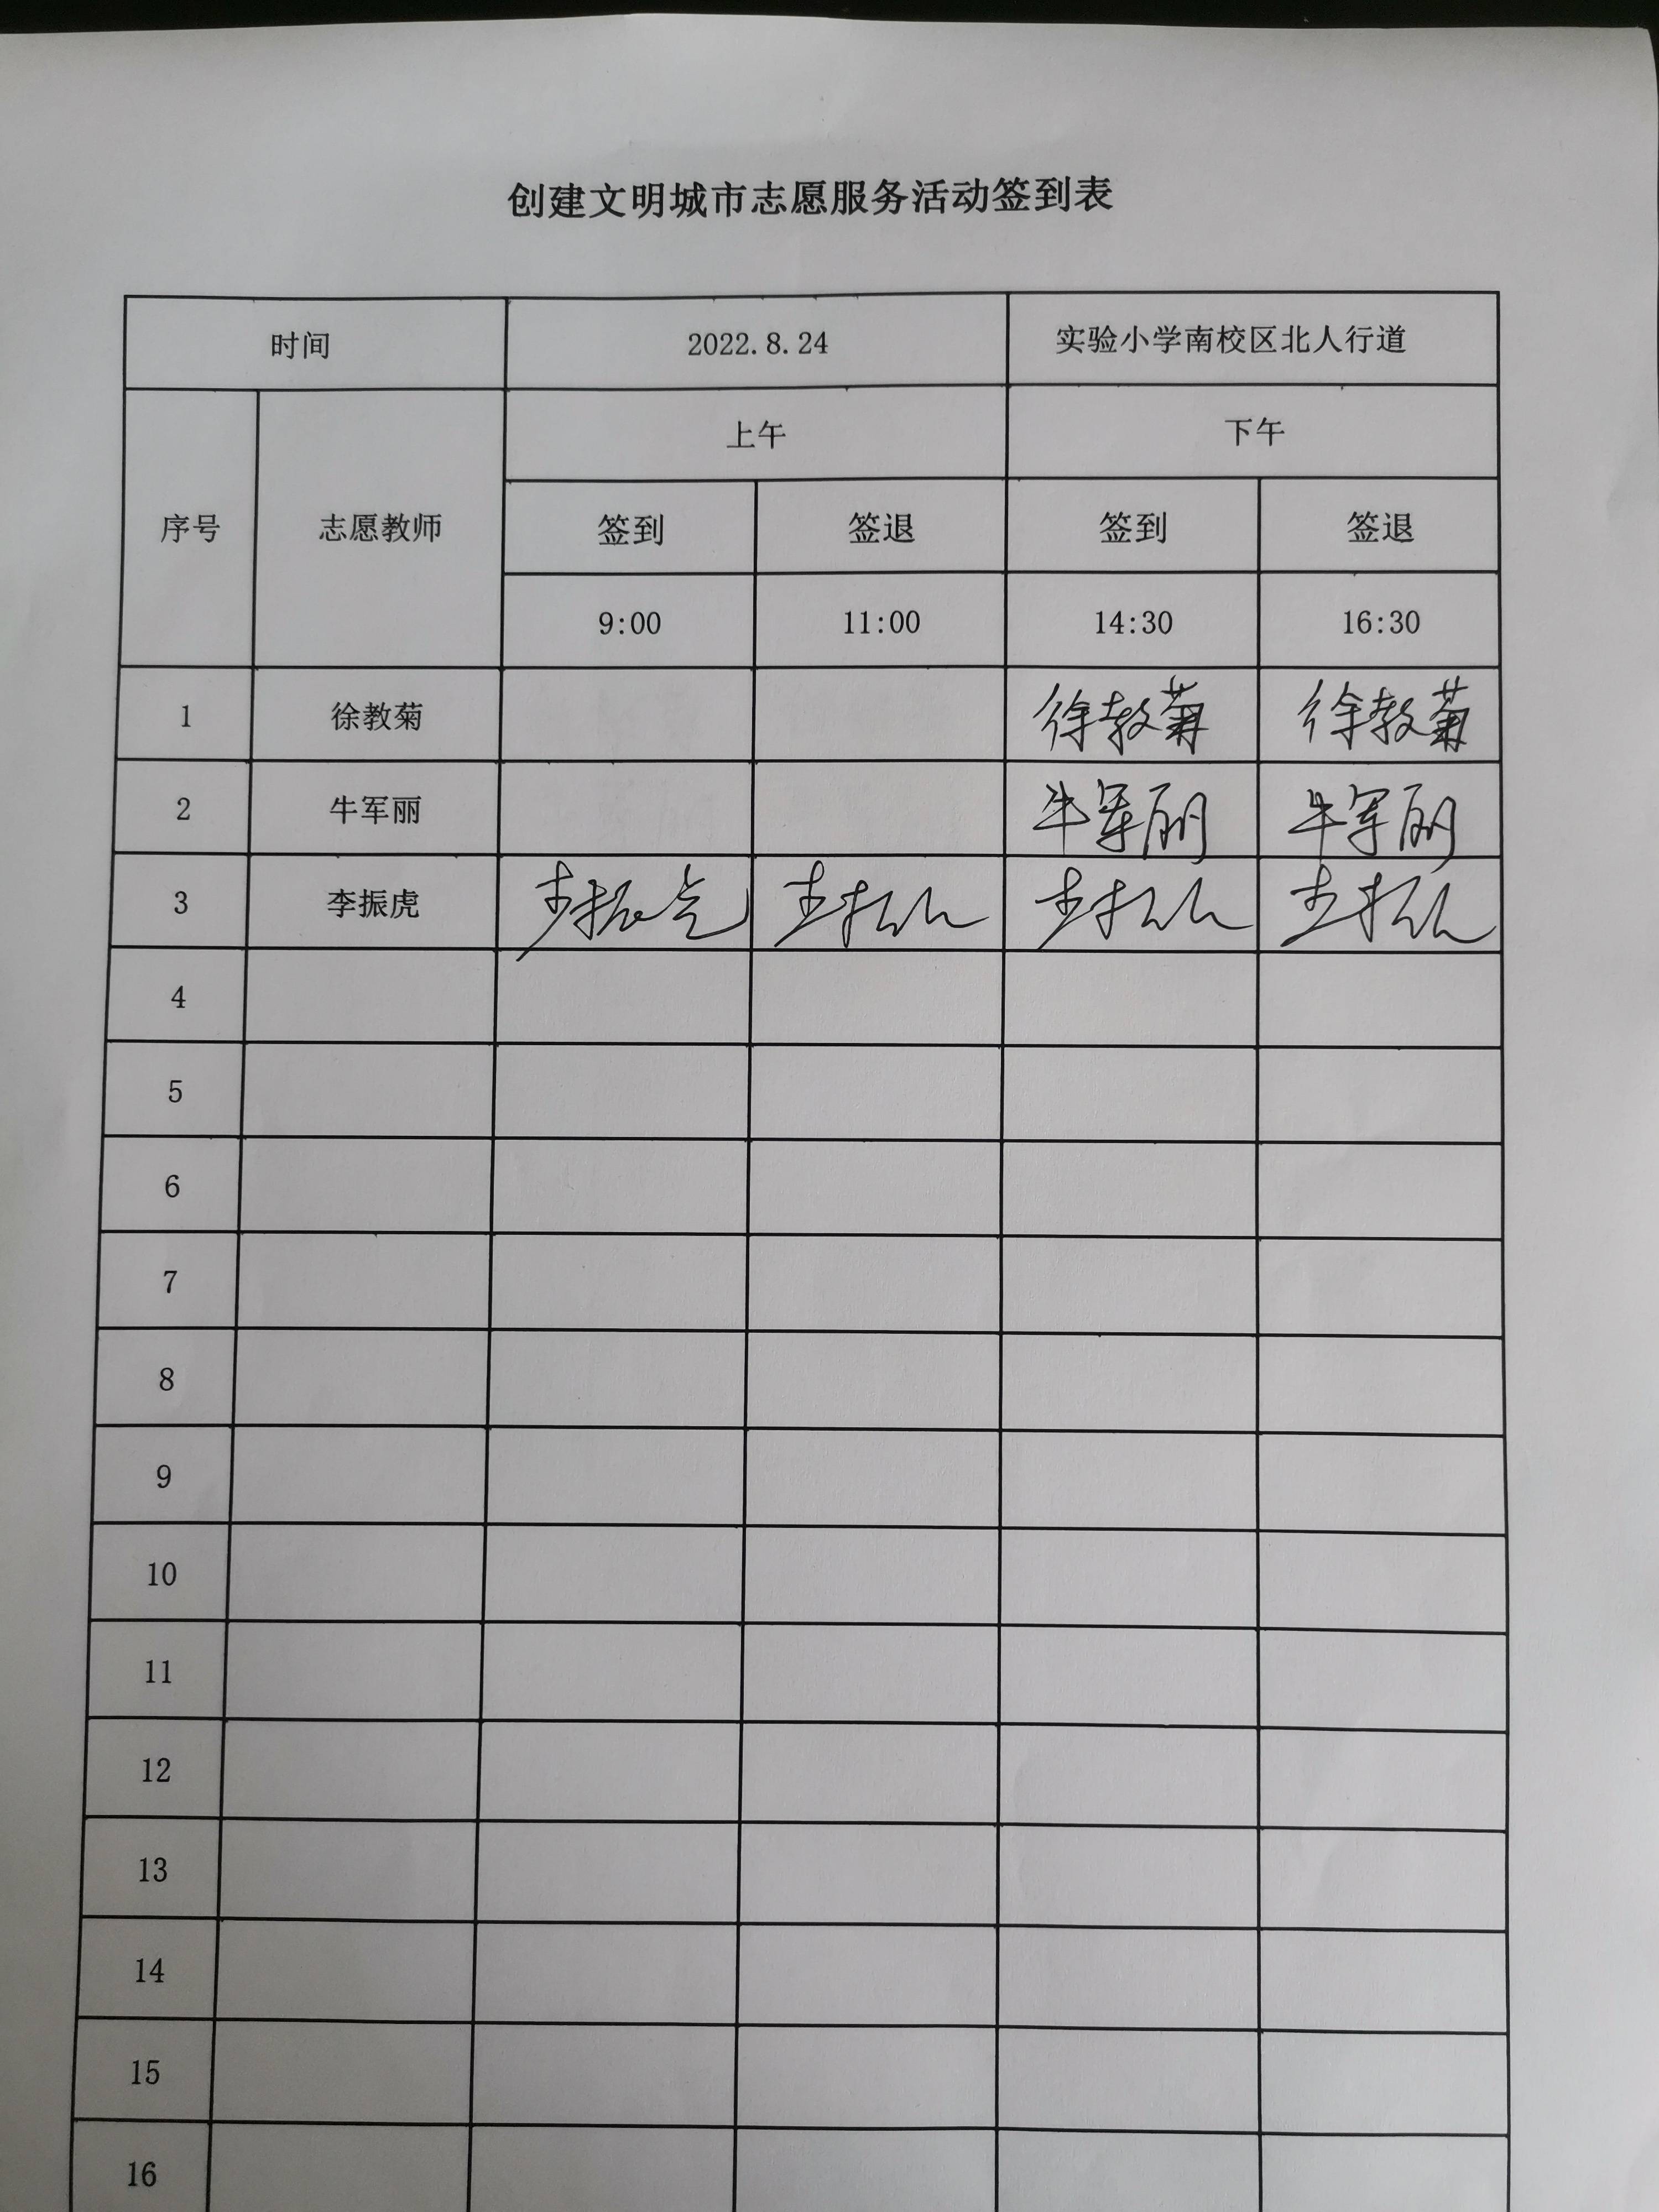 创建文明城市志愿服务活动签到表
时间 2022.8.24 实验小学南校区北人行道
上午 下午
序号 志愿教师 签到 签退 签到 签退
9:00 11:00 14:30 16:30
1 徐教菊 徐教菊 徐教菊
2 牛军丽 牛军丽 牛军丽
3 李振虎 李振虎
4
5
6
7
8
9
10
11
12
13
14
15
16